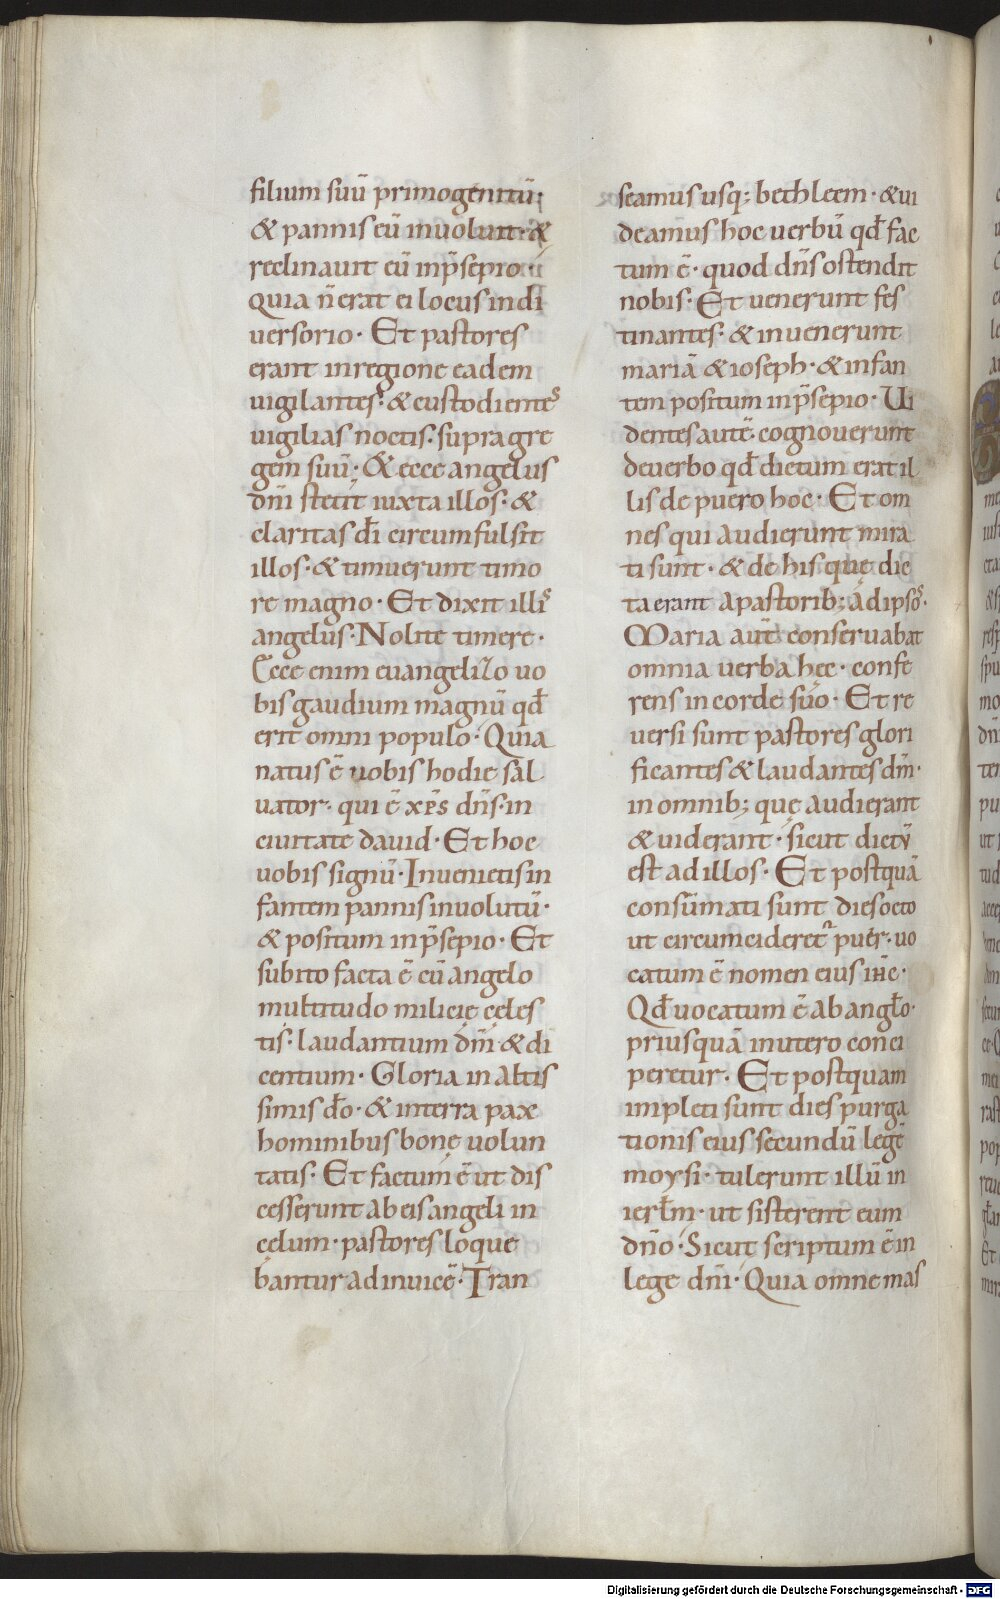 filium suū primogenitū;
& pannis eū inuoluit· &
reclinauit eū inp̄sepio·
Quia n̄ erat ei locus indi
uersorio· Et pastores
erant inregione eadem
uigilantes· & custodientes
uigilias noctis· supra gre
gem suū· & ecce angelus
dn̄i stetit iuxta illos· &
claritas dī circumfulsit
illos· & timuerunt timo
re magno· Et dixit illis
angelus· Nolite timere·
Ecce enim euangelizo uo
bis gaudium magnū qđ
erit omni populo· Quia
natus ē uobis hodie sal
uator· qui ē xp̄s dn̄s· in
ciuitate dauid· Et hoc
uobis signū· Inuenietis in
fantem pannis inuolutū·
& positum inp̄sepio· Et
subito facta ē cū angelo
multitudo milicię cęles
tis· laudantium dm̄ & di
centium· Gloria in altis
simis dō· & interra pax
hominibus bonę uolun
tatis· Et factum ē ut dis
cesserunt ab eis angeli in
cęlum· pastores loque
bantur adinuicē· Tran
seamus usq; bethleem· & ui
deamus hoc uerbū qđ fac
tum ē· quod dn̄s ostendit
nobis· Et uenerunt fes
tinantes· & inuenerunt
mariā & ioseph· & infan
tem positum inp̄sepio· Ui
dentes autē cognouerunt
deuerbo qđ dictum erat il
lis de puero hoc· Et om
nes qui audierunt mira
ti sunt· & de his quę dic
ta erant apastorib; adipsos·
Maria aut̄ conseruabat
omnia uerba hęc· confe
rens in corde suo· Et re
uersi sunt pastores glori
ficantes & laudantes dm̄·
in omnib; quę audierant
& uiderant· sicut dictū
est ad illos· Et postquā
consūmati sunt dies octo
ut circumcideret᷑ puer· uo
catum ē nomen eius ih̄c·
Qđ uocatum ē ab angło·
priusquā inutero conci
peretur· Et postquam
impleti sunt dies purga
tionis eius secundū legē
moysi· tulerunt illū in
ierłm· ut sisterent eum
dn̄o· Sicut scriptum ē in
lege dn̄i· Quia omne mas
Digitalisierung gefördert durch die Deutsche Forschungsgemeinschaft - DFG